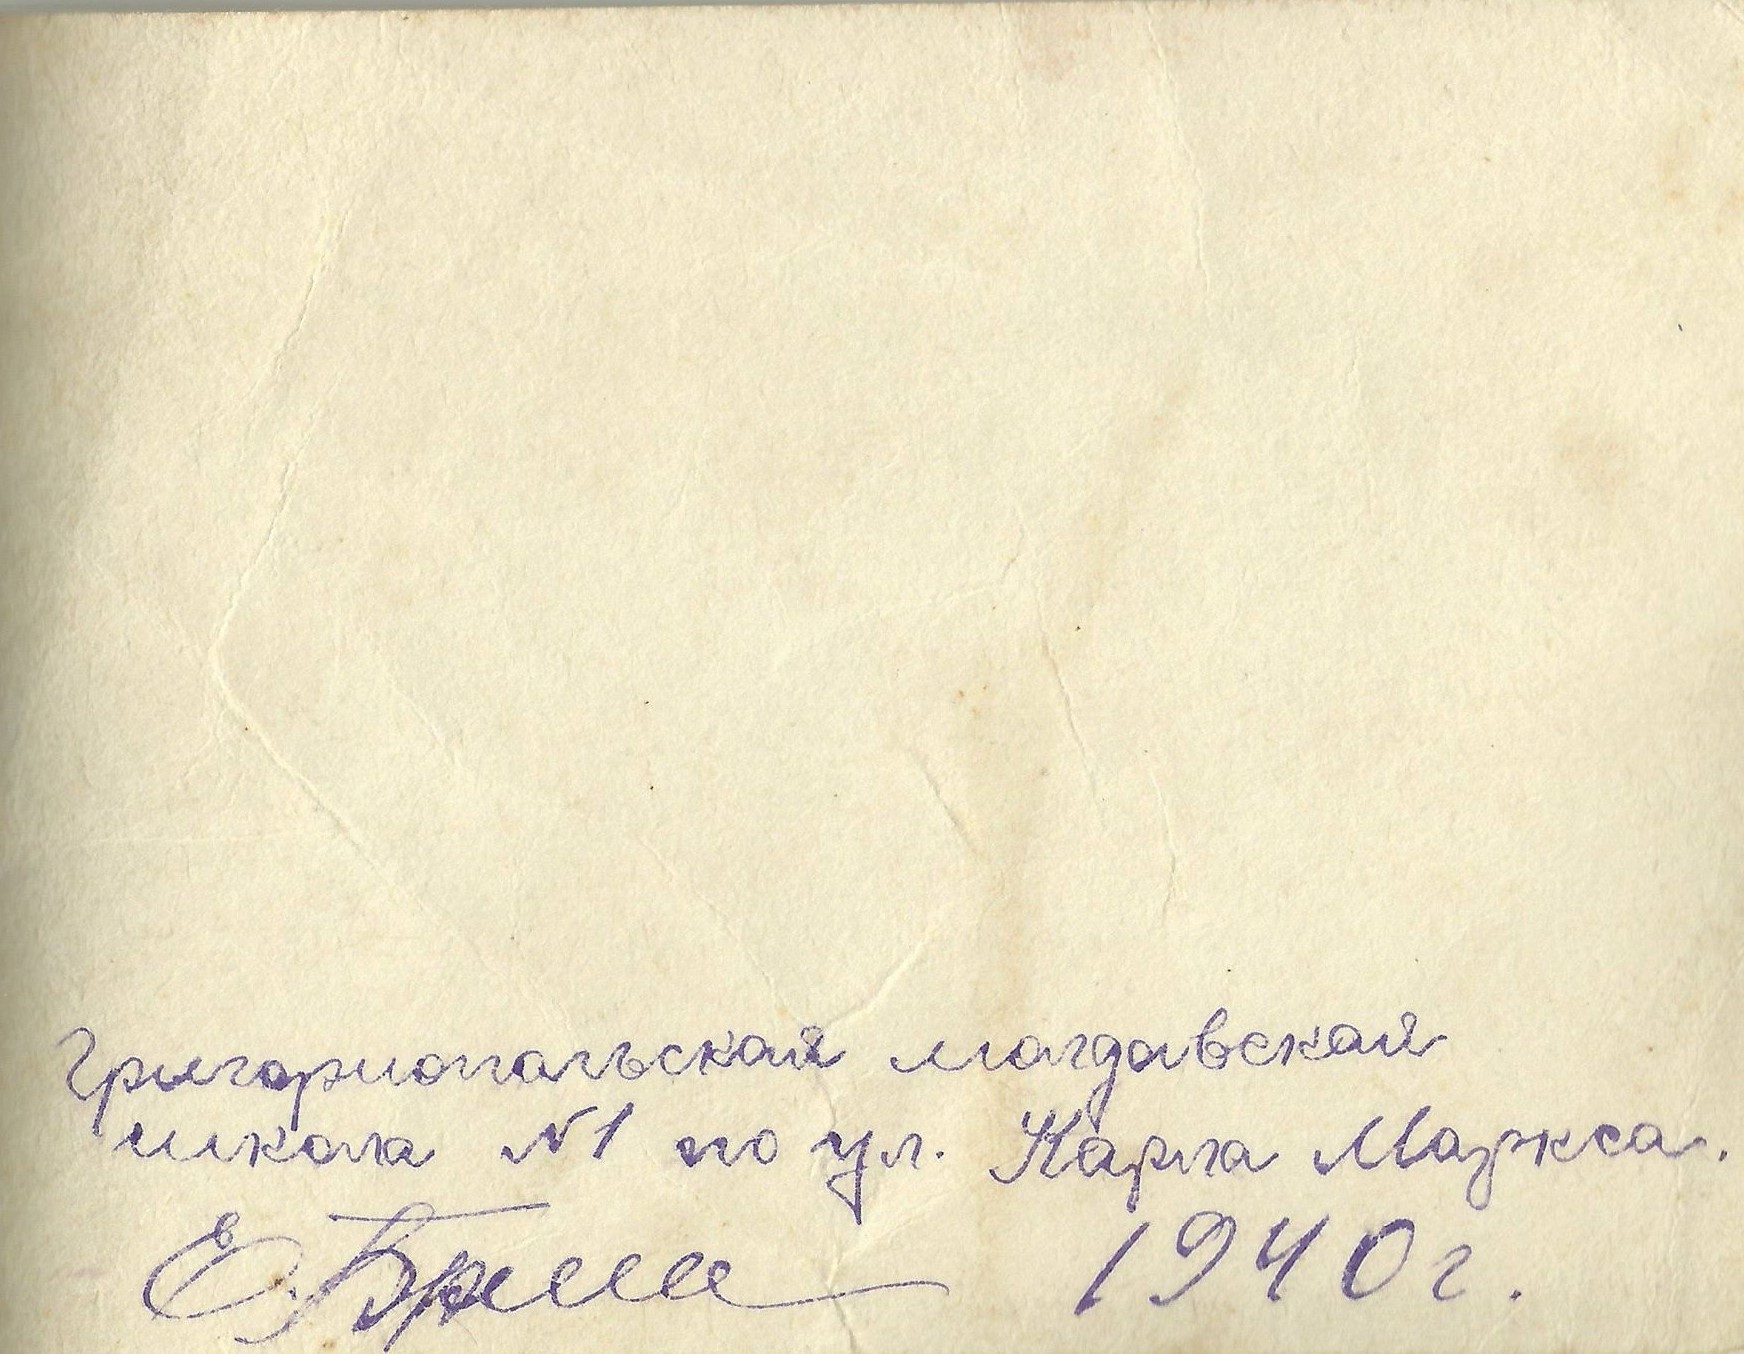 Григориопальская молдавская
школа №1 по ул. Карла Маркса.
1940 г.